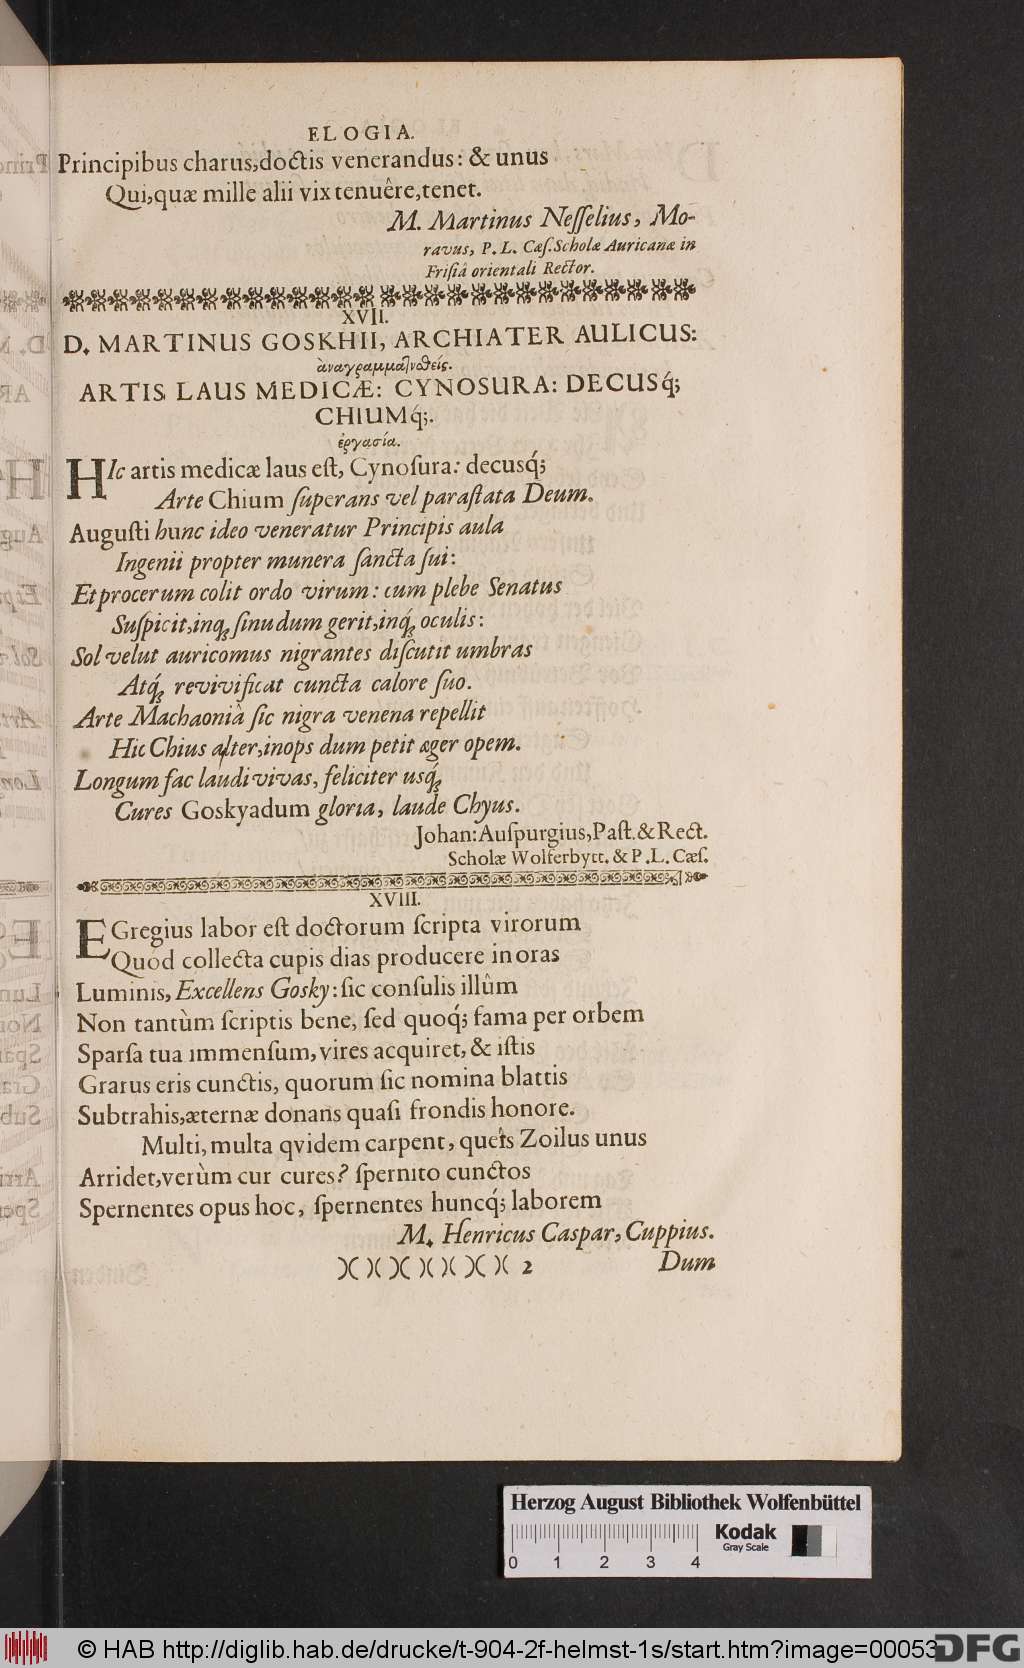 ELOGIA.
Principibus charus, doctis venerandus: & unus
Qui, quæ mille alii vix tenuêre, tenet.
M. Martinus Neſſelius, Mo-
ravus, P. L. Cæſ. Scholæ Auricanæ in
Friſiâ orientali Rector.
XVII.
D. MARTINUS GOSKHII, ARCHIATER AULICUS:
ἀναγραμματιϑείς.
ARTIS LAUS MEDICÆ: CYNOSURA: DECUSq́;
CHIUMq́;.
ἐργασία.
HIc artis medicæ laus eſt, Cynoſura: decusq́;
Arte Chium ſuperans vel paraſtata Deum.
Auguſti hunc ideo veneratur Principis aula
Ingenii propter munera ſancta ſui:
Et procerum colit ordo virum: cum plebe Senatus
Suſpicit, inq́; ſinu dum gerit, inq́; oculis:
Sol velut auricomus nigrantes diſcutit umbras
Atq́; revivificat cuncta calore ſuo.
Arte Machaoniâ ſic nigra venena repellit
Hic Chius alter, inops dum petit æger opem.
Longum fac laudi vivas, feliciter usq́;
Cures Goskyadum gloria, laude Chyus.
Johan: Auſpurgius, Paſt. & Rect.
Scholæ Wolferbytt. & P. L. Cæſ.
XVIII.
EGregius labor eſt doctorum ſcripta virorum
Quòd collecta cupis dias producere in oras
Luminis, Excellens Gosky: ſic conſulis illûm
Non tantùm ſcriptis bene, ſed quoq́; fama per orbem
Sparſa tua immenſum, vires acquiret, & iſtis
Grarus eris cunctis, quorum ſic nomina blattis
Subtrahis, æternæ donans quaſi frondis honore.
Multi, multa qvidem carpent, queîs Zoilus unus
Arridet, verùm cur cures? ſpernito cunctos
Spernentes opus hoc, ſpernentes huncq́; laborem
M. Henricus Caspar, Cuppius.
)()()()()()()( 2 Dum
Herzog August Bibliothek Wolfenbüttel
Kodak
Gray Scale
0 1 2 3 4
© HAB http://diglib.hab.de/drucke/t-904-2f-helmst-1s/start.htm?image=00053
DFG